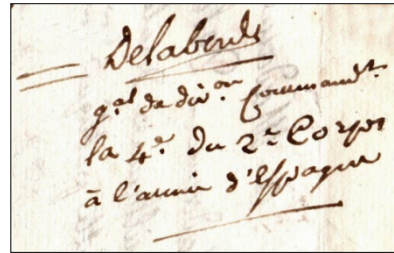 Delaborde
g.al de div.on Command.t
la 4.e du 2.e Corps
à l'armée d'Espagne